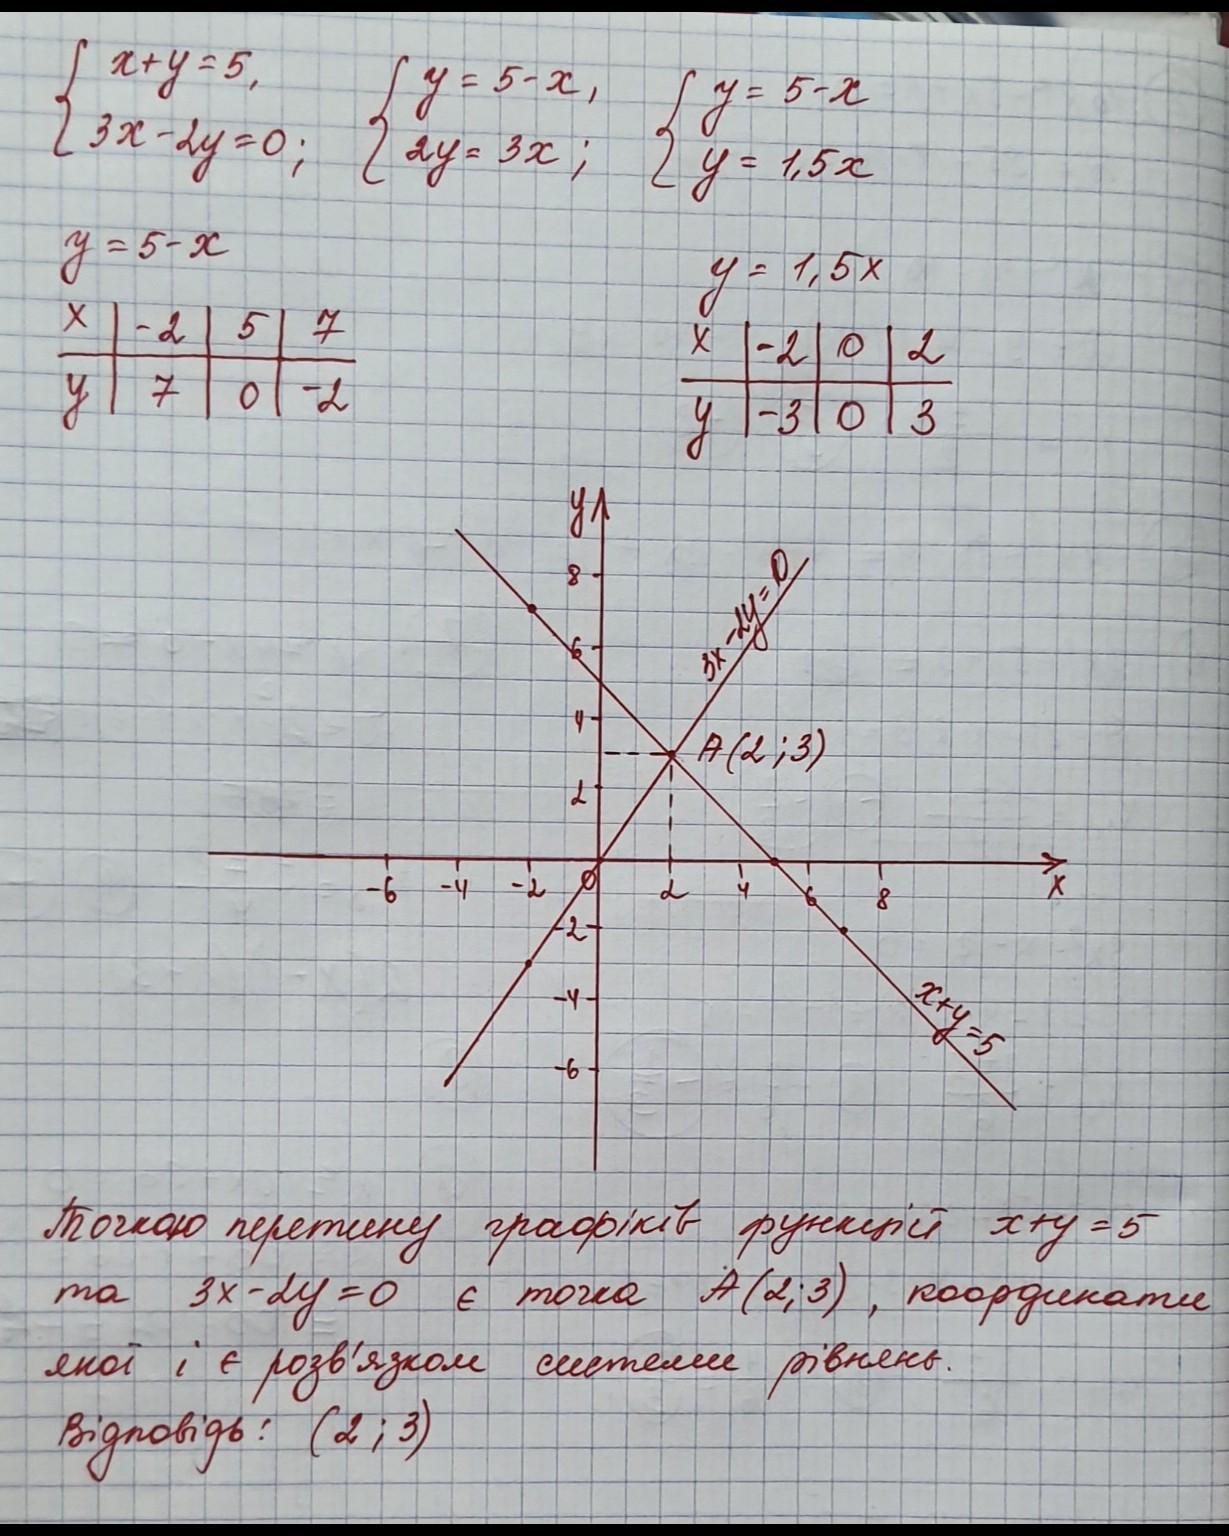 { x+y=5, { y = 5-x, { y = 5-x
3x-2y=0; 2y = 3x; y = 1,5x
y = 5-x y = 1,5x
x | -2 | 5 | 7 x | -2 | 0 | 2
y | 7 | 0 | -2 y | -3 | 0 | 3
y
8
3x-2y=0
6
4
A(2;3)
2
-6 -4 -2 0 2 4 6 8 x
-2
-4
x+y=5
-6
Точкою перетину графіків функцій x+y=5
та 3x-2y=0 є точка A(2;3), координати
якої і є розв'язком системи рівнянь.
Відповідь: (2;3)